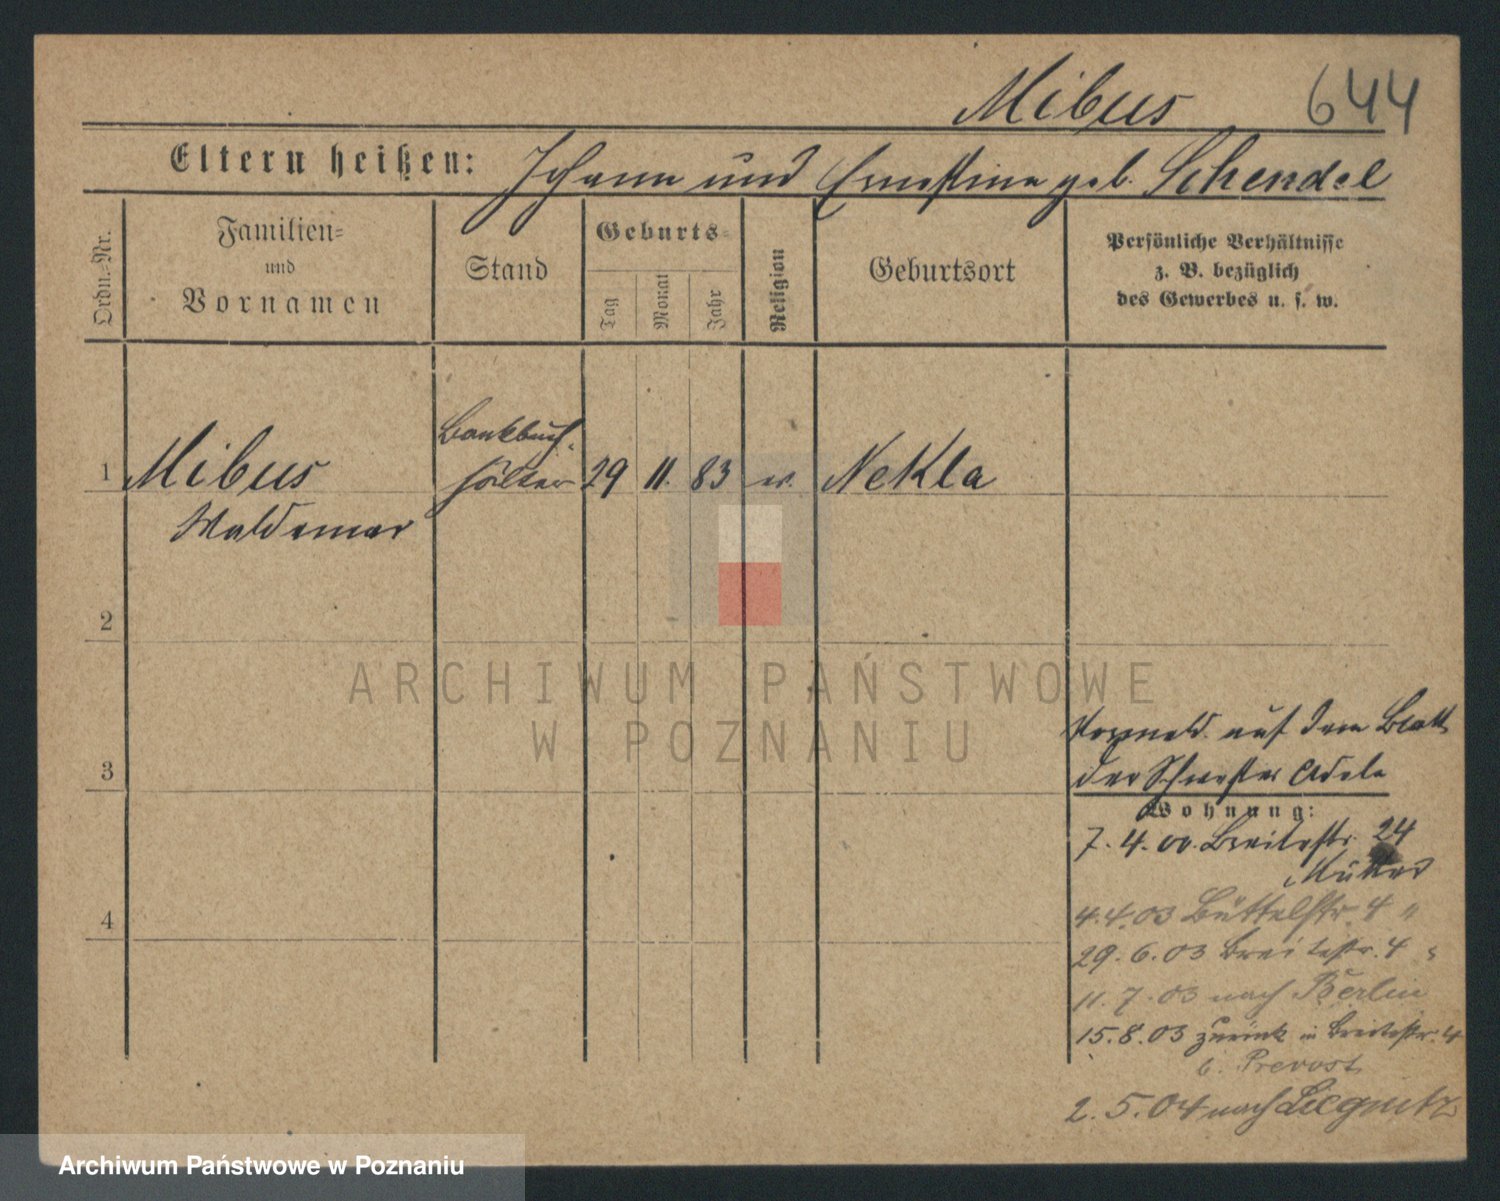 Mibus 644
Eltern heißen: Johann und Ernestine geb. Schendel
Ordn.-Nr.
Familien-
und
Vornamen
Stand
Geburts-
Tag Monat Jahr
Religion
Geburtsort
Persönliche Verhältnisse
z. B. bezüglich
des Gewerbes u. s. w.
1 Mibus Bankbuch-
halter 29 11. 83 ev. Nekla
Waldemar
2
3
4
ARCHIWUM PAŃSTWOWE
W POZNANIU
auf dem Blatt
der Schwester Adele
Wohnung:
7. 4. 00. Breitestr. 24
4.4.03 Büttelstr. 4 "
29. 6. 03 Breitestr. 4 "
11. 7. 03 nach Berlin
15. 8. 03 zurück in Breitestr. 4
b. Prevost
2. 5. 04 nach Liegnitz
Archiwum Państwowe w Poznaniu